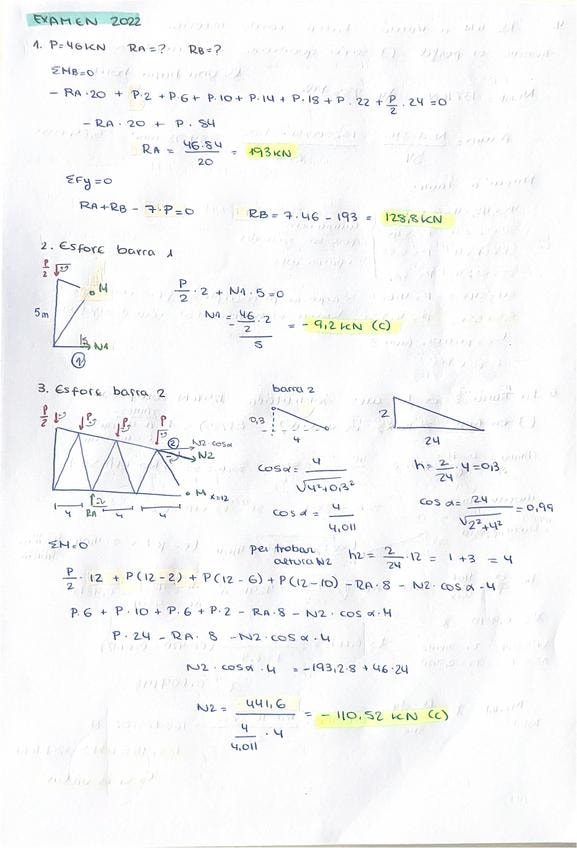 EXAMEN 2022
1. P=46KN RA=? RB=?
ΣMB=0
- RA·20 + P·2 + P·6 + P·10 + P·14 + P·18 + P·22 + P/2 · 24 = 0
- RA·20 + P·84
RA = 46·84 / 20 = 193KN
ΣFy=0
RA+RB - 7·P=0 RB= 7·46 - 193 = 128,8KN
2. Esforç barra 1
P/2
M
5m
N1
1
P/2 · 2 + N1·5=0
N1 = - 46/2 · 2 / 5 = - 9,2 KN (C)
3. Esforç barra 2
P/2 P P P
2 N2·cosα
N2
M x=12
RA
4 4 4
barra 2
0,3
4
2
24
cosα = 4 / √4²+0,3²
cosα = 4 / 4,011
h = 2/24 · 4 = 0,3
cosα = 24 / √2²+4² = 0,99
ΣM=0
Per trobar altura N2 h2 = 2/24 · 12 = 1 + 3 = 4
P/2 · 12 + P(12-2) + P(12-6) + P(12-10) - RA·8 - N2·cosα·4
P·6 + P·10 + P·6 + P·2 - RA·8 - N2·cosα·4
P·24 - RA·8 - N2·cosα·4
N2·cosα·4 = -193,2·8 + 46·24
N2 = - 441,6 / 4/4,011 · 4 = - 110,52 KN (C)